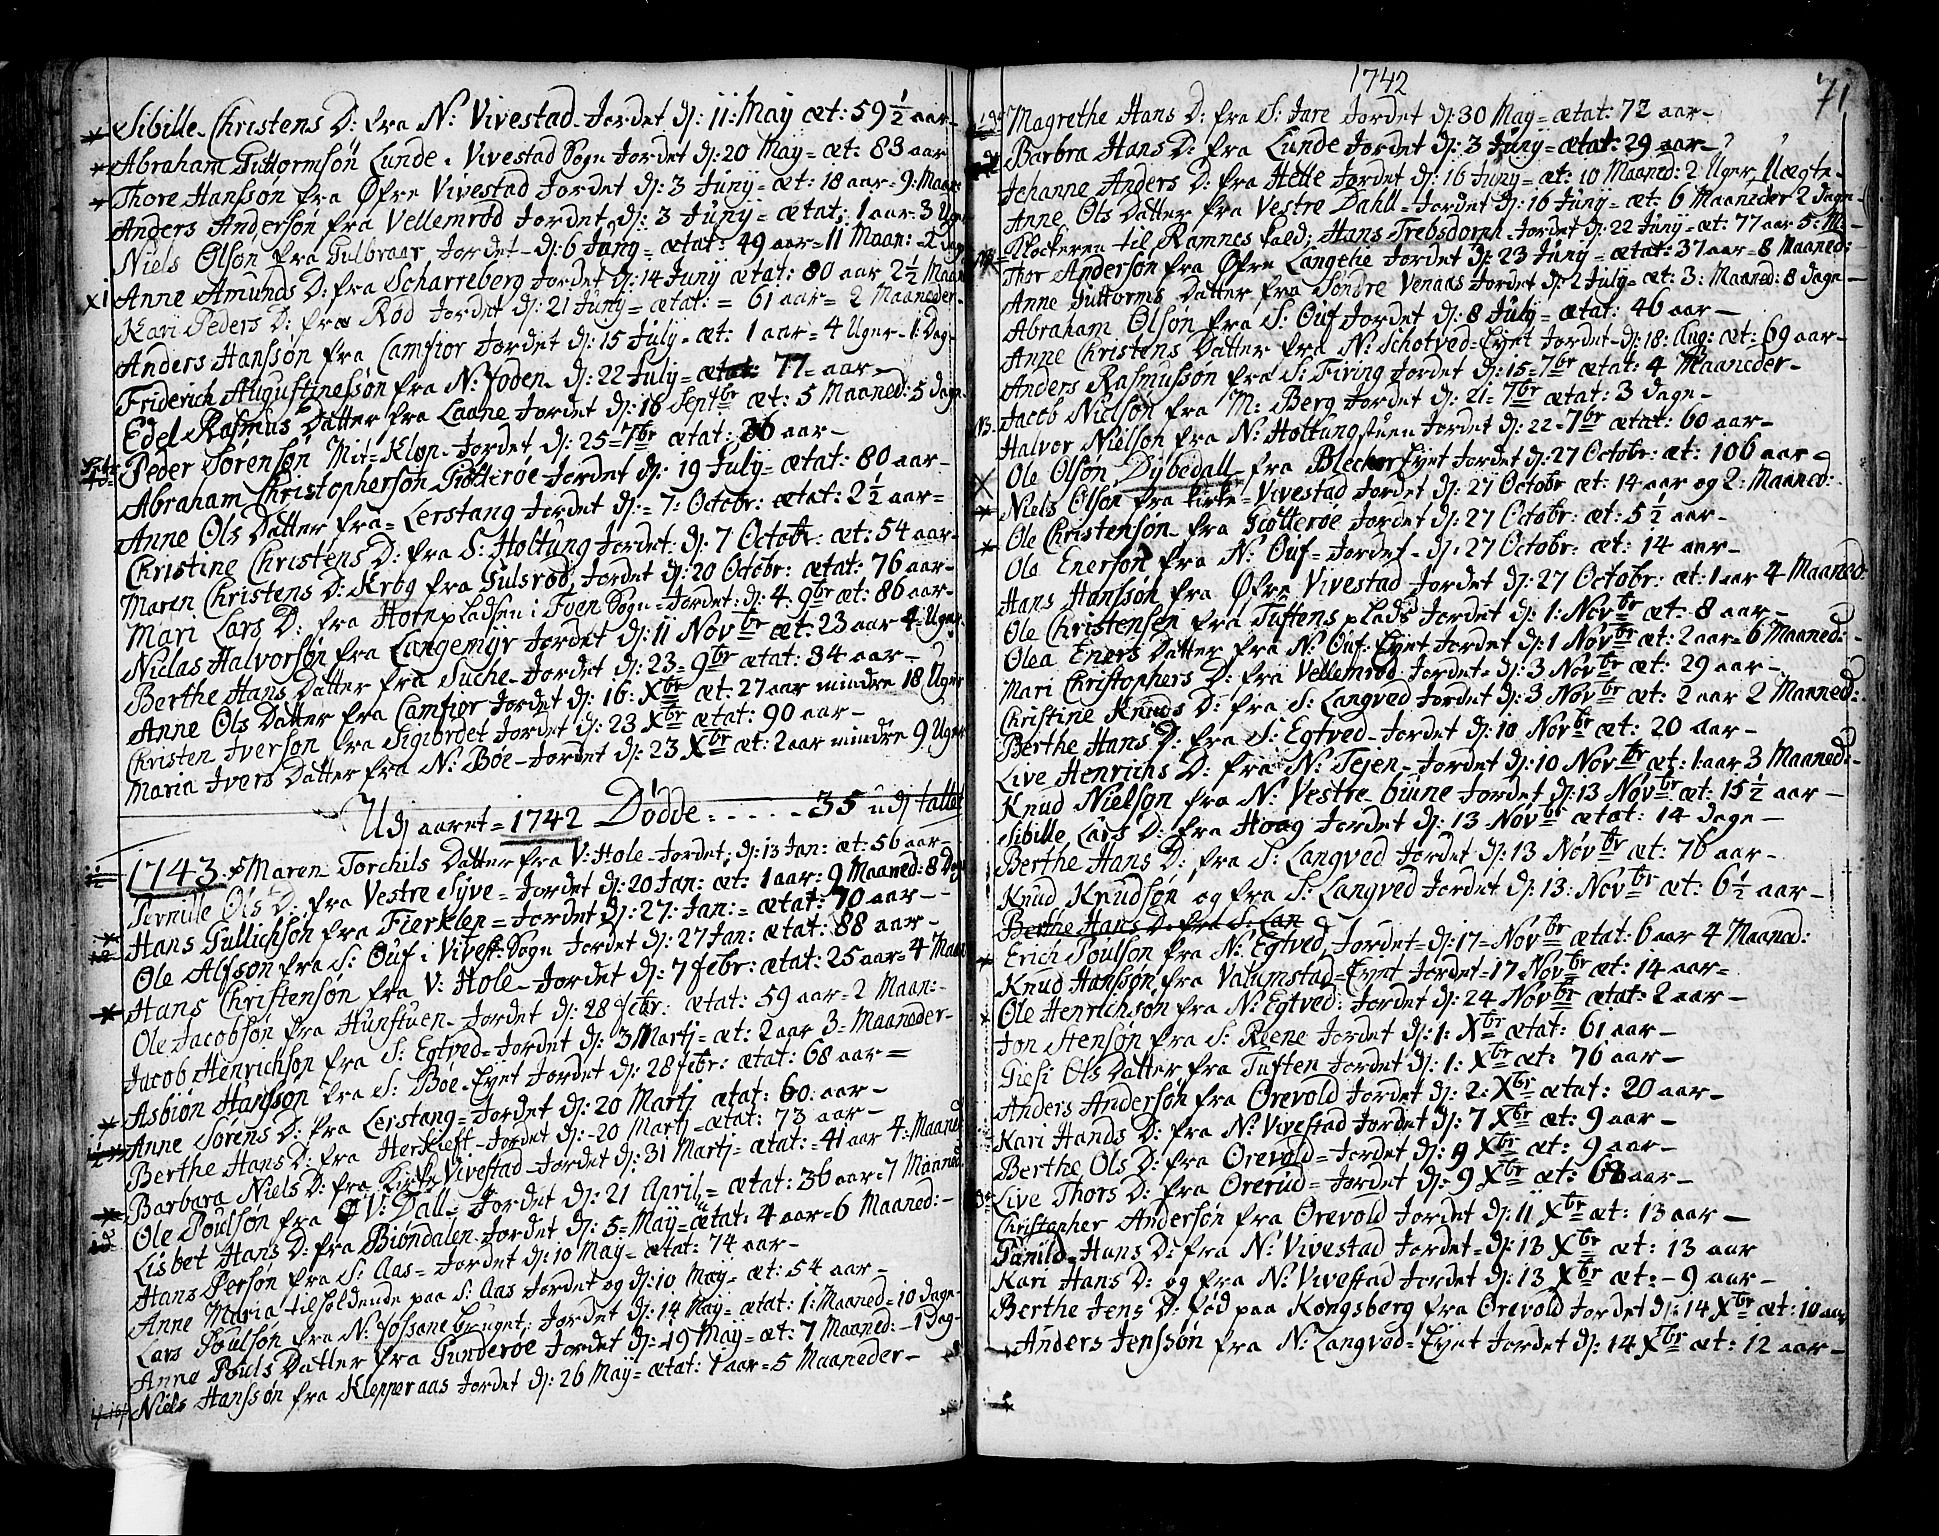 Sibille Christens D: fra N: Vivestad Jordet dj: 11: May æt: 59 1/2 aar
Abraham Guttormsøn Lunde i Vivestad Sogn Jordet dj: 20 May = æt: 83 aar
Thore Hanssøn fra Øfre Vivestad Jordet dj: 3 Junij = æt: 18 aar = 9: Maan:
Anders Andersøn fra Vellemrød Jordet dj: 3 Junij = ætat: 1 aar = 3 Uger
Niels Olsøn fra Gulbraar Jordet dj: 6 Junij = ætat: 49 aar = 11 Maan: = 1 dag
Anne Amunds D: fra Scharreberg Jordet dj: 14 Junij ætat: 80 aar 2 1/2 Maan
Kari Peders D: fra Rød Jordet dj: 21 Junij = ætat: = 61 aar = 2 Maaneder
Anders Hanssøn fra Camfior Jordet dj: 15 July = æt: 1 aar = 4 Uger - 1: Dag
Friderich Augustinessøn fra N: Joden dj: 22 July = ætat: 77 = aar
Edel Rasmus Datter fra Laane Jordet dj: 18 Septbr æt: 5 Maaned: 5 dage
Peder Sørensøn Mit=Kløp Jordet dj: 25 = 7br ætat: 36 aar
Abraham Christophersøn Gotterøe Jordet dj: 19 July = ætat: 80 aar
Anne Ols Datter fra = Lerstang Jordet dj: = 7: Octobr: ætat: 2 1/2 aar =
Christine Christens D: fra S: Holtung Jordet: dj: 7 Octobr: æt: 54 aar
Maren Christens D: Krbg fra Gulsrød, Jordet dj: 20 Octobr: ætat: 76 aar
Mari Lars D: fra Hornpladsen i Føen Sogn = Jordet: dj: 4: 9br æt: 86 aar
Niclas Halvorsøn fra Langemyr Jordet dj: 11 Novbr æt: 23 aar 4 Uger
Berthe Hans Datter fra Suche Jordet dj: 23 = 9br ætat: 34 aar
Anne Ols Datter fra Camfior Jordet dj: 16: Xbr æt: 27 aar mindre 18 Uger
Christen Iversøn fra Sigiordet Jordet dj: 23 Xbr ætat: 90 aar
Maria Ivers Datter fra N: Bøe Jordet dj: 23 Xbr æt: 2 aar mindre 9 Uger
Udj aaret = 1742 Dødde : . . . . 35 udj tallet
1743. Maren Torchils Datter fra V: Hole Jordet: dj: 13 Jan: æt: 56 aar
Pernille Ols D: fra Vestre Syve Jordet dj: 20 Jan: æt: 1 aar: 9 Maaned: 8 Dag
Hans Gullichsøn fra Fierklep = Jordet dj: 27: Jan: = ætat: 70 aar
Ole Alfsøn fra S: Ouf i Vivest: Sogn Jordet dj: 27 Jan: ætat: 88 aar
Hans Christensøn fra V: Hole Jordet dj: 7 Febr: ætat: 25 aar = 4 Maan
Ole Jacobsøn fra Hunstuen Jordet dj: 28 Febr: ætat: 59 aar = 2 Maan:
Jacob Henrichsøn fra S: Egtved = Jordet dj: 3 Martj = æt: 2 aar 3 Maaneder
Asbiøn Hansøn fra S: Bøe Eyet Jordet dj: 28 Febr: ætat: 68 aar =
Anne Sørens D: fra Lerstang = Jordet dj: 20 Martj ætat: 60 aar
Berthe Hans D: fra Herkieft Jordet dj: 20 Martj = ætat: 73 aar
Barbara Niels D: fra Kirke Vivestad Jordet dj: 31 Martj = ætat: 41 aar 4 Maaned
Ole Poulsøn fra V: Dall = Jordet dj: 21 April = ætat: 36 aar = 7 Maaned
Lisbet Hans D: fra Biøndalen Jordet dj: 5 = May = ætat: 4 aar = 6 Maaned:
Hans Persøn fra S: Aas = Jordet dj: 10 May = ætat: 74 aar
Anne Maria tilholdende paa S: Aas Jordet og dj: 10 May = æt: 54 aar
Lars Poulsøn fra N: Fossanebruget: Jordet dj: 14 May = ætat: 1: Maaned = 10 dage
Anne Pouls Datter fra Gunderøe Jordet dj: 19 May = æt: 7 Maaned: 1 Dag
Niels Hanssøn fra Klepperaas Jordet dj: 26 May = ætat: 1 aar = 5 Maaneder
1742
71
Magrethe Hans D: fra S: Fare Jordet dj: 30 May = ætat: 72 aar
Barbra Hans D: fra Lunde Jordet dj: 3 Juny = ætat: 29 aar
Johanne Anders D: fra Helle Jordet dj: 16 Juny = æt: 10 Maaned: 2 Uger Uægte
Anne Ols Datter fra Vestre Dahll Jordet dj: 16 Juny = æt: 6 Maaneder 2 dage
Klockeren til Ramnes kald: Hans Trebsdorph Jordet dj: 22 Juny = æt: 77 aar 5: M:
Thor Andersøn fra Øfre Langche Jordet dj: 23 Juny = ætat: 37 aar = 8 Maaned:
Anne Guttorms Datter fra Søndre Venaas Jordet dj: 2 July = æt: 3: Maaned: 8 dage
Abraham Olsøn fra S: Ouf Jordet dj: 8 July = ætat: 46 aar
Anne Christens Datter fra N: Schotved Eyet Jordet dj: 18: Aug: æt: 69 aar
Anders Rasmussøn fra S: Firing Jordet dj: 15 = 7br ætat: 4 Maaneder
Jacob Nielsøn fra M: Berg Jordet dj: 21 = 7br ætat: 3 dage
Halvor Nielsøn fra N: Holtung stuen Jordet dj: 22 = 7br ætat: 60 aar
Ole Olsøn Dybedall fra Blecker Eyet Jordet dj: 27 Octobr: æt: 106 aar
Niels Olsøn fra kirke = Vivestad Jordet dj: 27 Octobr æt: 14 aar og 2: Maaned:
Ole Christensøn fra Gotterøe Jordet dj: 27 Octobr: æt: 5 1/2 aar
Ole Enersøn fra N: Ouf = Jordet dj: 27 Octobr: æt: 14 aar
Hans Hanssøn fra Øfre Vivestad Jordet dj: 27 Octobr: æt: 1 aar 4 Maaned:
Ole Christensen fra Tuftens plads Jordet dj: 1: Novbr æt: 8 aar
Olea Eners Datter fra N: Ouf Eyet Jordet dj: 1 Novbr æt: 2 aar = 6 Maaned:
Mari Christophers D: fra Vellemrød Jordet dj: 3 Novbr æt: 29 aar
Christine Knuds D: fra S: Langved Jordet dj: 3 Novbr æt: 2 aar 2 Maaned:
Berthe Hans D: fra S: Egtved Jordet dj: 10 Novbr æt: 20 aar
Live Henrichs D: fra N: Tejen Jordet dj: 10 Novbr æt: 1 aar 3 Maaned:
Knud Nielsøn fra N: Vestre buine Jordet dj: 13 Novbr æt: 15 1/2 aar
Sibille Lars D: fra Hoag Jordet dj: 13 Novbr ætat: 14 dage
Berthe Hans D: fra S: Langved Jordet dj: 13 Novbr æt: 76 aar
Knud Knudsøn og fra S: Langved Jordet dj: 13: Novbr æt: 6 1/2 aar
Berthe Hans D: fra S: Lan
Erich Poulsøn fra N: Egtved Jordet = dj: 17 = Novbr ætat: 6 aar 4 Maaned:
Knud Hanssøn fra Valumstad = Eyet Jordet = 17 Novbr æt: 14 aar =
Ole Henrichsøn fra N: Egtved: Jordet dj: 24 Novbr ætat: 2 aar
Jon Stensøn fra S: Reene Jordet dj: 1: Xbr ætat: 61 aar
Giesi Ols Datter fra Tuften Jordet dj: 1: Xbr æt: 76 aar
Anders Andersøn fra Orevold Jordet dj: 2: Xbr ætat: 20 aar
Kari Hands D: fra N: Vivestad Jordet dj: 7 Xbr æt: 9 aar
Berthe Ols D: fra Orevold = Jordet dj: 9 Xbr æt: 9 aar
Live Thors D: fra Orerud = Jordet dj: 9 Xbr æt: 68 aar
Christopher Andersøn fra Orevold Jordet dj: 11 Xbr æt: 13 aar
Gunild Hans D: fra N: Vivestad Jordet = dj: 13 Xbr æt: 13 aar
Kari Hans D: og fra N: Vivestad Jordet dj: 13 Xbr æt: 9 aar
Berthe Jens D: fød paa Kongsberg fra Orevold Jordet dj: 14 Xbr æt: 10 aar
Anders Jenssøn fra N: Langved = Eyet Jordet dj: 14 Xbr æt: 12 aar